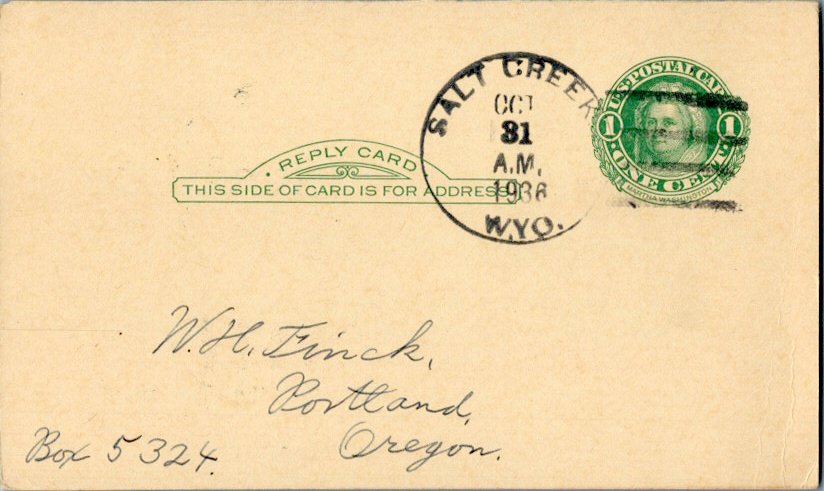 SALT CREEK
OCT
31
A.M.
1936
WYO.
U.S. POSTAL CARD
1 1
ONE CENT
MARTHA WASHINGTON
REPLY CARD
THIS SIDE OF CARD IS FOR ADDRESS
W. H. Finck,
Portland,
Oregon.
Box 5324.